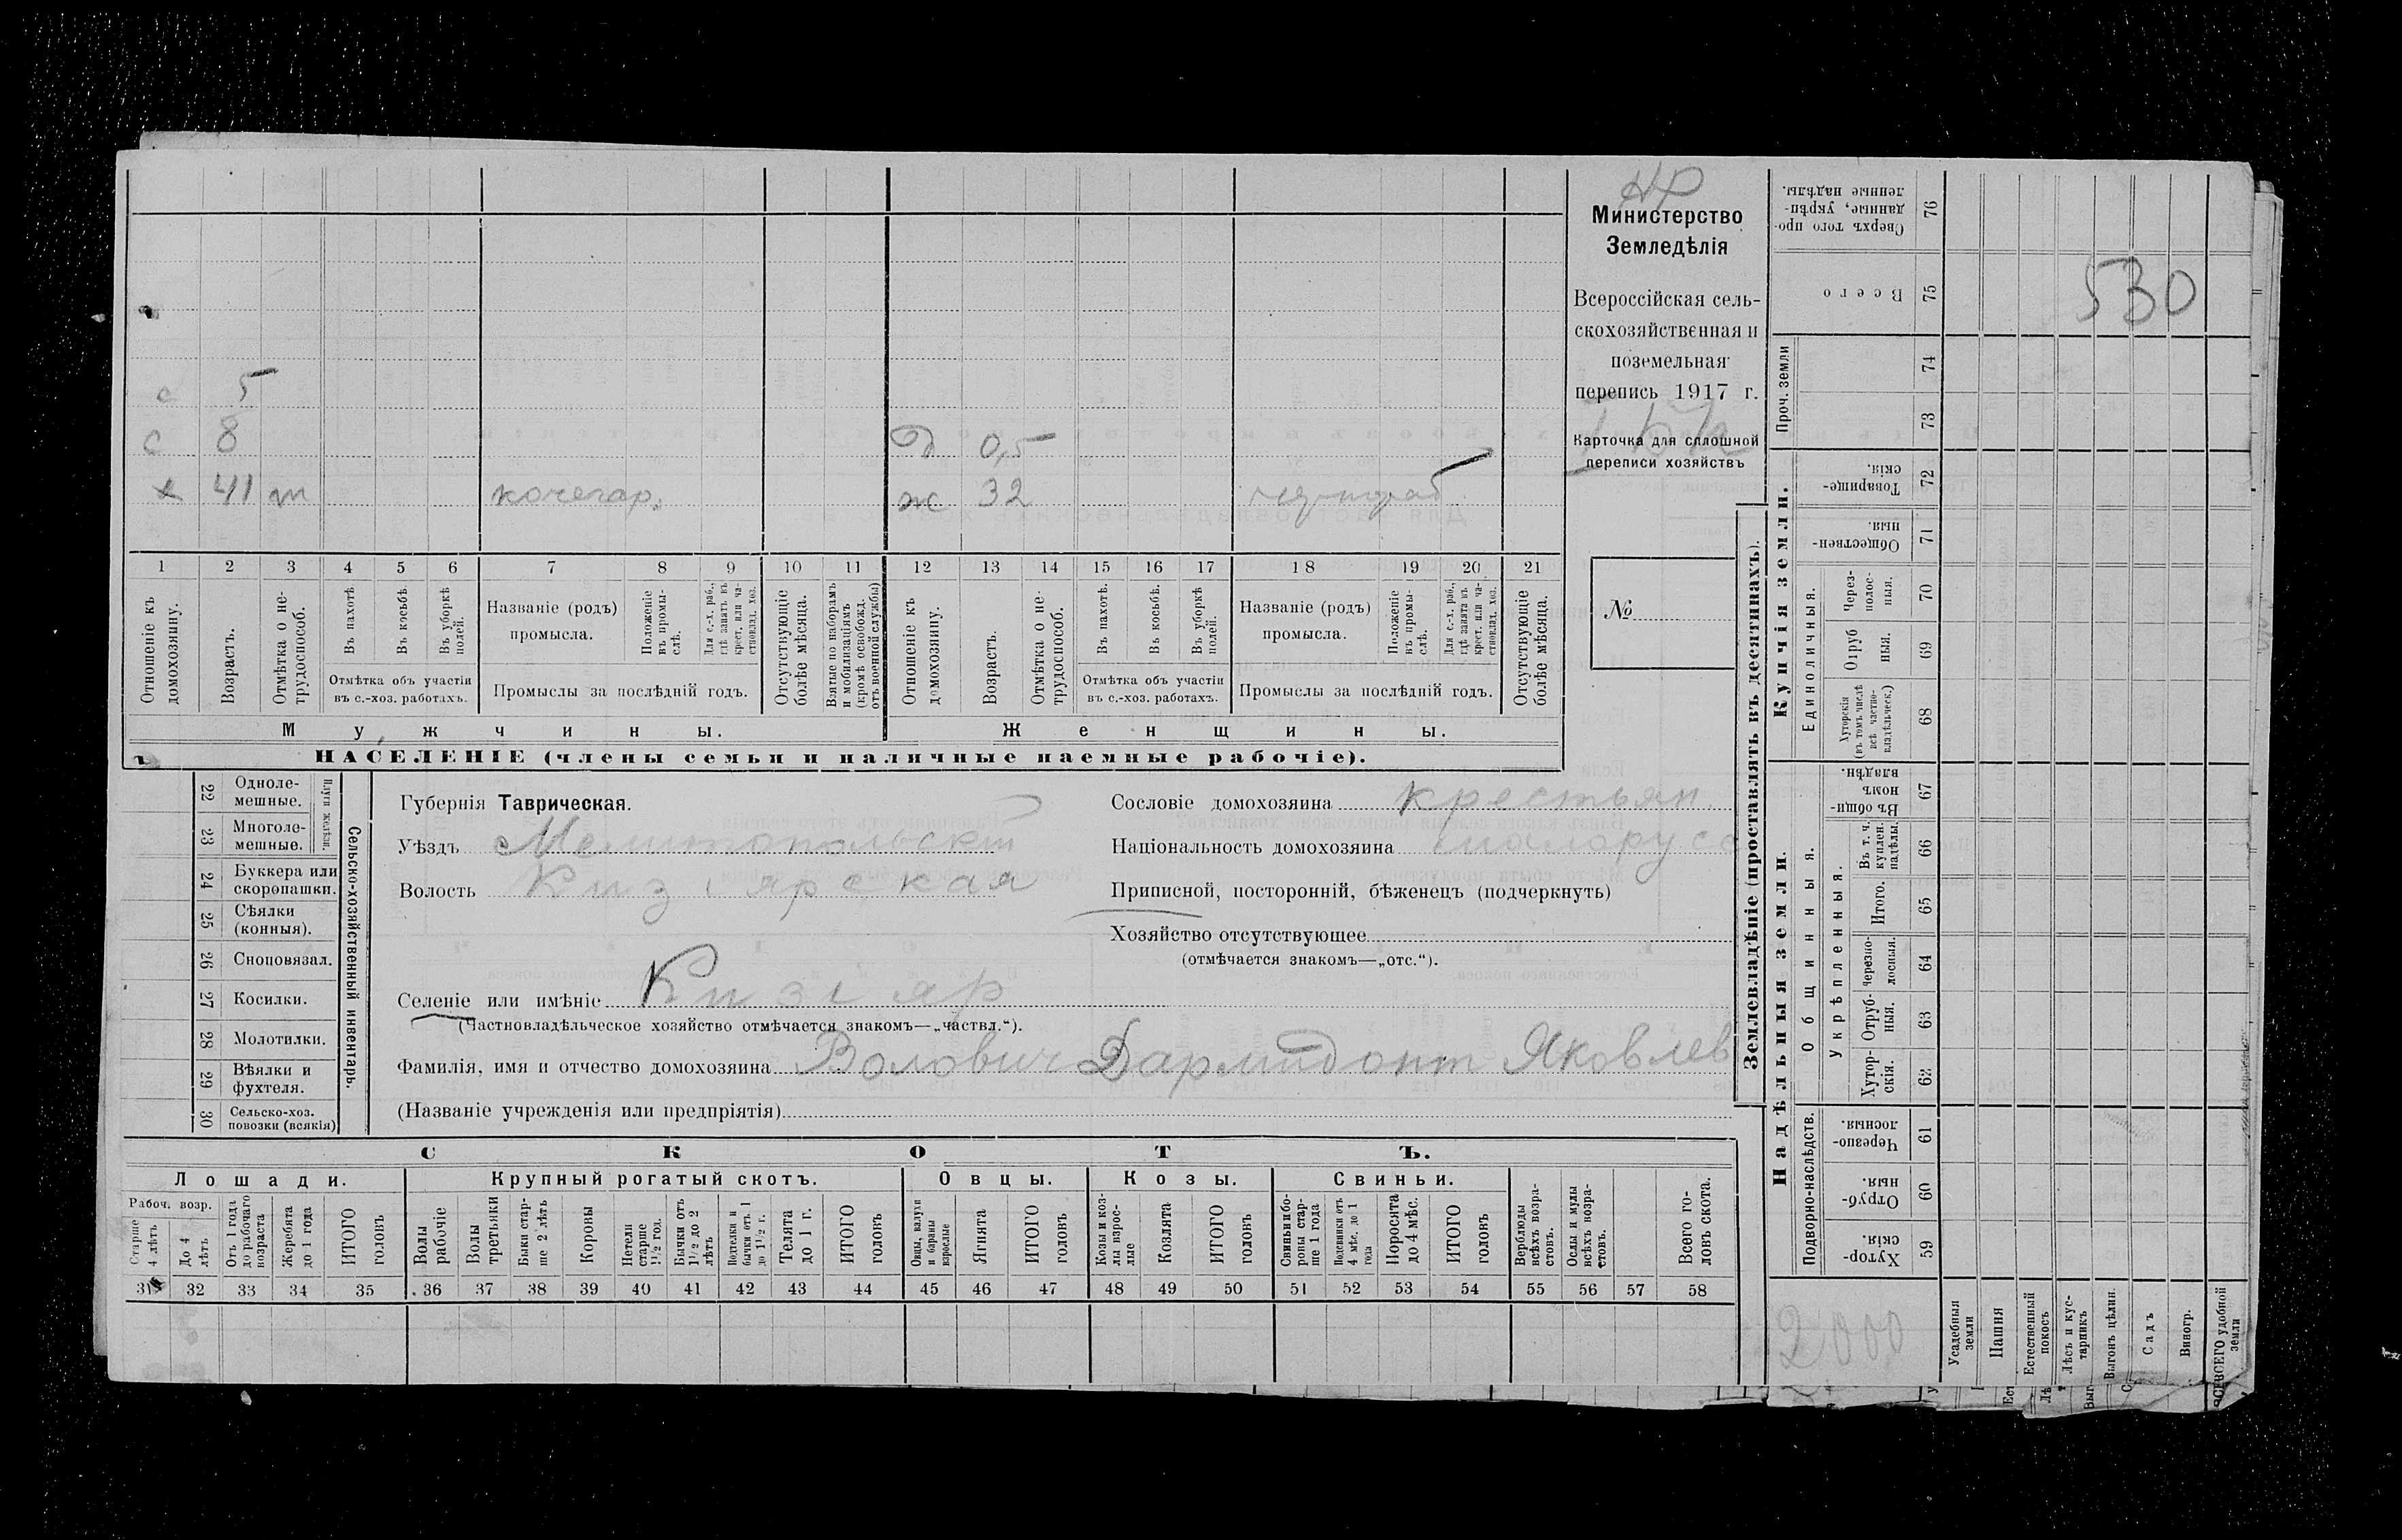 НР
Министерство
Земледѣлія
Всероссійская сель-
скохозяйственная и
поземельная
перепись 1917 г.
Карточка для сплошной
переписи хозяйствъ
№
с 5
с 8 д 0,5
х 41 т кочегар. ж 32
1 2 3 4 5 6 7 8 9 10 11 12 13 14 15 16 17 18 19 20 21
Отношеніе къ домохозяину.
Возрастъ.
Отмѣтка о не-трудоспособ.
Въ пахотѣ
Въ косьбѣ
Въ уборкѣ полей.
Отмѣтка объ участіи
въ с.-хоз. работахъ.
Названіе (родъ)
промысла.
Положеніе въ промы-слѣ.
Для с.-х. раб., гдѣ занятъ въ крест. или ча-стновлад. хоз.
Промыслы за послѣдній годъ.
Отсутствующіе болѣе мѣсяца.
Взятые по наборамъ и мобилизаціямъ (кромѣ освобожд. отъ военной службы)
Отношеніе къ домохозяину.
Возрастъ.
Отмѣтка о не-трудоспособ.
Въ пахотѣ.
Въ косьбѣ.
Въ уборкѣ полей.
Отмѣтка объ участіи
въ с.-хоз. работахъ.
Названіе (родъ)
промысла.
Положеніе въ промы-слѣ.
Для с.-х. раб., гдѣ занята въ крест. или ча-стновлад. хоз.
Промыслы за послѣдній годъ.
Отсутствующіе болѣе мѣсяца.
Мужчины. Женщины.
НАСЕЛЕНІЕ (члены семьи и наличные наемные рабочіе).
22 Одноле-мешные.
23 Многоле-мешные.
Плуги желѣзн.
24 Буккера или скоропашки.
25 Сѣялки (конныя).
26 Сноповязал.
27 Косилки.
28 Молотилки.
29 Вѣялки и фухтеля.
30 Сельско-хоз. повозки (всякія)
Сельско-хозяйственный инвентарь.
Губернія Таврическая.
Уѣздъ Мелитопольскій
Волость Кизіярская
Селеніе или имѣніе Кизіяр
(Частновладѣльческое хозяйство отмѣчается знакомъ—„частвл.“).
Фамилія, имя и отчество домохозяина Волович Дармидонт Яковлев
(Названіе учрежденія или предпріятія)
Сословіе домохозяина крестьян.
Національность домохозяина малорусс
Приписной, посторонній, бѣженецъ (подчеркнуть)
Хозяйство отсутствующее
(отмѣчается знакомъ—„отс.“).
СКОТЪ.
Лошади. Крупный рогатый скотъ. Овцы. Козы. Свиньи.
Рабоч. возр.
Старше 4 лѣтъ
До 4 лѣтъ
Отъ 1 года до рабочаго возраста
Жеребята до 1 года
ИТОГО головъ
Волы рабочіе
Волы третьяки
Быки стар-ше 2 лѣтъ
Коровы
Нетели старше 1½ год.
Бычки отъ 1½ до 2 лѣтъ
Подтелки и бычки отъ 1 до 1½ г.
Телята до 1 г.
ИТОГО головъ
Овцы, валухи и бараны взрослые
Ягнята
ИТОГО головъ
Козы и коз-лы взрос-лые
Козлята
ИТОГО головъ
Свиньи и бо-ровы стар-ше 1 года
Подсвинки отъ 4 мѣс. до 1 года
Поросята до 4 мѣс.
ИТОГО головъ
Верблюды всѣхъ возра-стовъ.
Ослы и мулы всѣхъ возра-стовъ.
Всего го-ловъ скота.
31 32 33 34 35 36 37 38 39 40 41 42 43 44 45 46 47 48 49 50 51 52 53 54 55 56 57 58
Землевладѣніе (проставлять въ десятинахъ).
Сверхъ того про-данные, укрѣп-ленные надѣлы. 76
Всего 75
530
Проч. земли
74
73
Купчія земли.
Товарище-скія. 72
Обществен-ныя. 71
Единоличныя.
Через-полос-ныя. 70
Отруб ныя. 69
Хуторскія (въ томъ числѣ всѣ частно-владѣльческ.) 68
Надѣльныя земли.
Въ общин-номъ владѣн. 67
Общинныя.
Укрѣпленныя.
Въ т. ч. куплен. надѣлы. 66
Итого. 65
Черезпо-лосныя. 64
Отруб-ныя. 63
Хутор-скія. 62
Подворно-наслѣдств.
Черезпо-лосныя. 61
Отруб-ныя. 60
Хутор-скія. 59
2000
Усадебныя земли
Пашня
Естественный покосъ
Лѣсъ и кус-тарникъ
Выгонъ цѣлин.
Садъ
Виногр.
ВСЕГО удобной земли